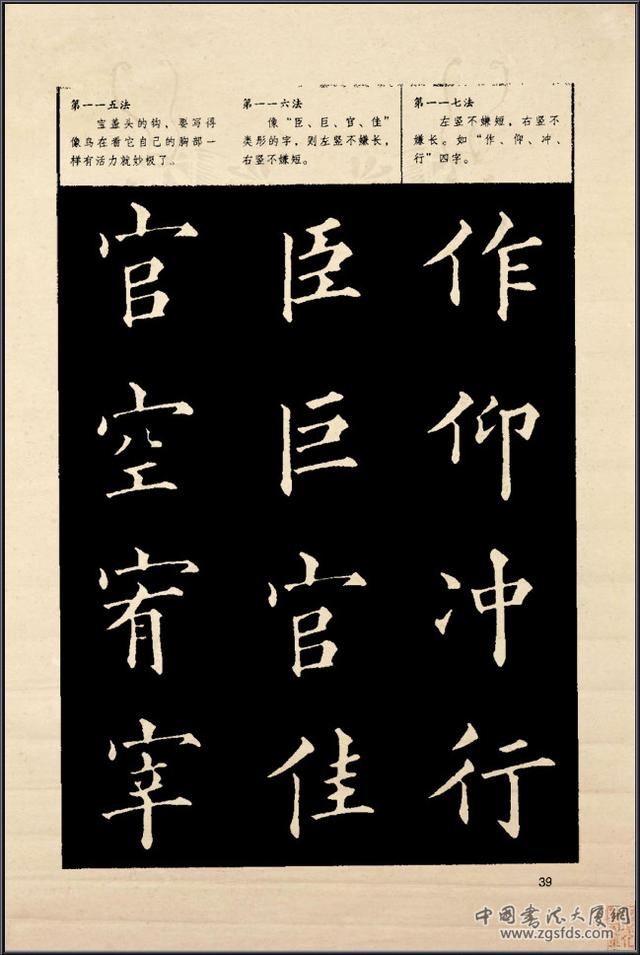 第一一五法
宝盖头的钩，要写得
像鸟在看它自己的胸部一
样有活力就妙极了。
第一一六法
像“臣、巨、官、佳”
类形的字，则左竖不嫌长，
右竖不嫌短。
第一一七法
左竖不嫌短，右竖不
嫌长。如“作、仰、冲、
行”四字。
官 臣 作
空 巨 仰
宥 官 冲
宰 佳 行
39
中国书法大厦網
www.zgsfds.com